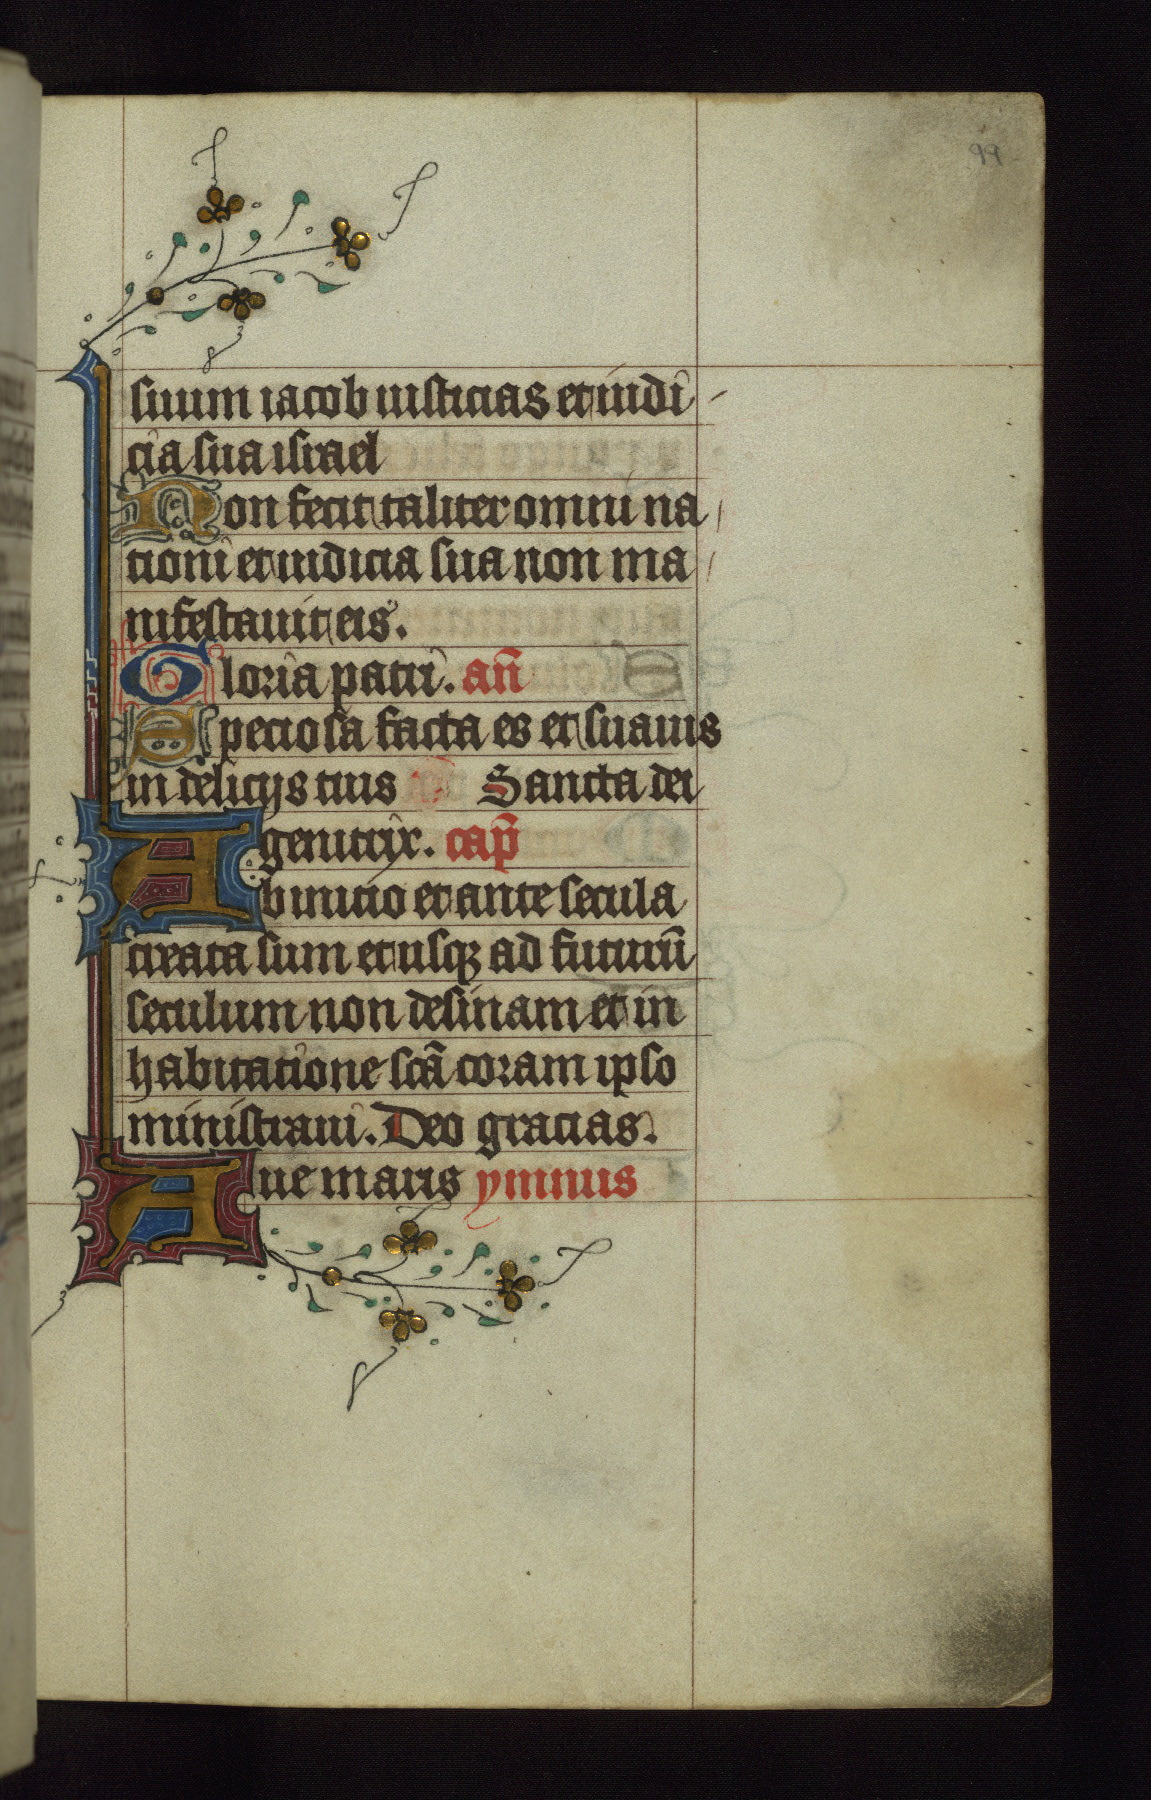 99
suum iacob iusticias et iudi
cia sua israel
Non fecit taliter omni na
tioni et iudicia sua non ma
nifestauit eis.
Gloria patri. an̄
Speciosa facta es et suauis
in delicijs tuis Sancta dei
genitrix. cap̄
Ab inicio et ante secula
creata sum et usqꝫ ad futurū
seculum non desinam et in
habitatione scā coram ipso
ministraui. Deo gracias.
Aue maris ymnus